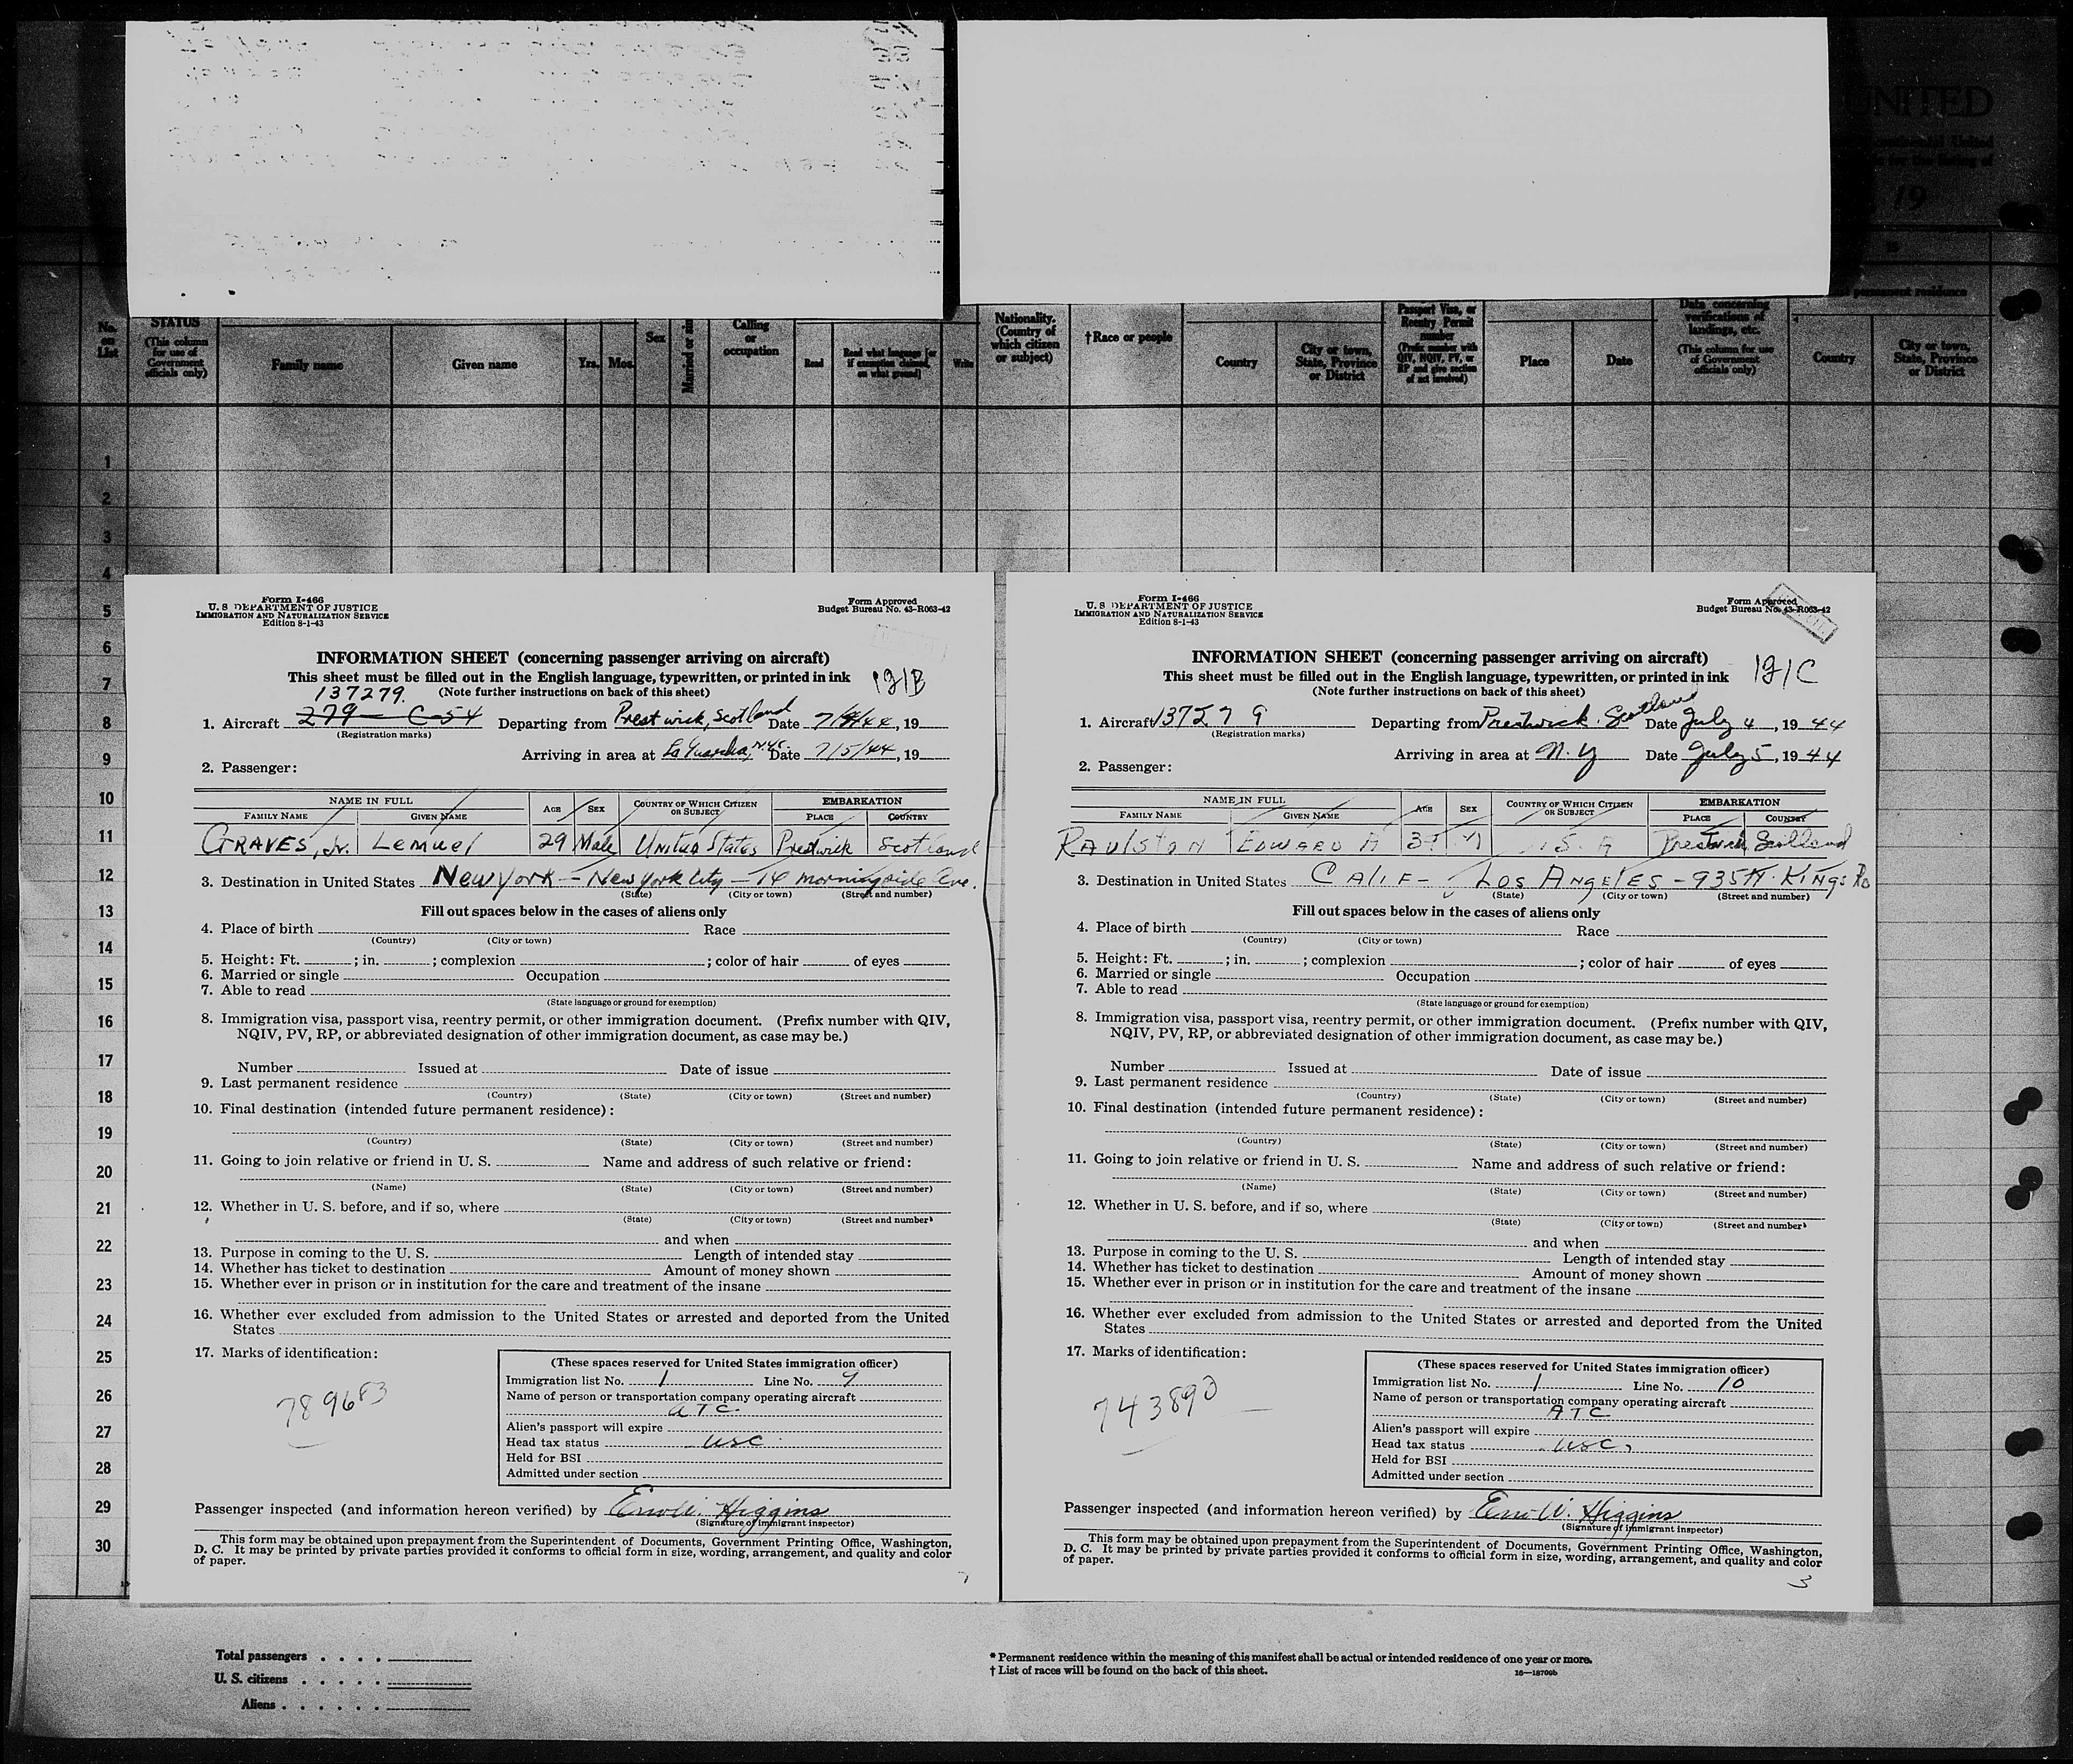 UNITED
19
No. on List
STATUS
(This column for use of Government officials only)
Family name
Given name
Yrs. Mos.
Sex
Married or sin
Calling or occupation
Read
Read what language [or if exemption claimed, on what ground]
Write
Nationality. (Country of which citizen or subject)
†Race or people
Country
City or town, State, Province or District
Passport Visa, or Reentry Permit number
(Prefix number with QIV, NQIV, PV, or RP and give section of act involved)
Place
Date
Data concerning verifications of landings, etc.
(This column for use of Government officials only)
permanent residence
Country
City or town, State, Province or District
1
2
3
4
5
6
7
8
9
10
11
12
13
14
15
16
17
18
19
20
21
22
23
24
25
26
27
28
29
30
Form I-466
U. S DEPARTMENT OF JUSTICE
IMMIGRATION AND NATURALIZATION SERVICE
Edition 8-1-43
Form Approved
Budget Bureau No. 43-R063-42
INFORMATION SHEET (concerning passenger arriving on aircraft)
This sheet must be filled out in the English language, typewritten, or printed in ink
(Note further instructions on back of this sheet)
137279.
1. Aircraft 279 - C-54 Departing from Prestwick, Scotland Date 7/4/44, 19
(Registration marks)
Arriving in area at La Guardia, N.Y.C. Date 7/5/44, 19
2. Passenger:
NAME IN FULL
AGE
SEX
COUNTRY OF WHICH CITIZEN OR SUBJECT
EMBARKATION
FAMILY NAME
GIVEN NAME
PLACE
COUNTRY
GRAVES, Jr. Lemuel 29 Male United States Prestwick Scotland
3. Destination in United States New York - New York City - 14 Morningside Ave.
(State) (City or town) (Street and number)
Fill out spaces below in the cases of aliens only
4. Place of birth Race
(Country) (City or town)
5. Height: Ft. ; in. ; complexion ; color of hair of eyes
6. Married or single Occupation
7. Able to read
(State language or ground for exemption)
8. Immigration visa, passport visa, reentry permit, or other immigration document. (Prefix number with QIV,
NQIV, PV, RP, or abbreviated designation of other immigration document, as case may be.)
Number Issued at Date of issue
9. Last permanent residence
(Country) (State) (City or town) (Street and number)
10. Final destination (intended future permanent residence):
(Country) (State) (City or town) (Street and number)
11. Going to join relative or friend in U. S. Name and address of such relative or friend:
(Name) (State) (City or town) (Street and number)
12. Whether in U. S. before, and if so, where
(State) (City or town) (Street and number)
and when
13. Purpose in coming to the U. S. Length of intended stay
14. Whether has ticket to destination Amount of money shown
15. Whether ever in prison or in institution for the care and treatment of the insane
16. Whether ever excluded from admission to the United States or arrested and deported from the United
States
17. Marks of identification:
789683
(These spaces reserved for United States immigration officer)
Immigration list No. 1 Line No. 9
Name of person or transportation company operating aircraft
ATC.
Alien's passport will expire
Head tax status USC
Held for BSI
Admitted under section
Passenger inspected (and information hereon verified) by Higgins
(Signature of immigrant inspector)
This form may be obtained upon prepayment from the Superintendent of Documents, Government Printing Office, Washington,
D. C. It may be printed by private parties provided it conforms to official form in size, wording, arrangement, and quality and color
of paper.
Form I-466
U. S DEPARTMENT OF JUSTICE
IMMIGRATION AND NATURALIZATION SERVICE
Edition 8-1-43
Form Approved
Budget Bureau No. 43-R063-42
INFORMATION SHEET (concerning passenger arriving on aircraft)
This sheet must be filled out in the English language, typewritten, or printed in ink
(Note further instructions on back of this sheet)
1. Aircraft 137279 Departing from Prestwick. Scotland Date July 4, 1944
(Registration marks)
Arriving in area at N.Y Date July 5, 1944
2. Passenger:
NAME IN FULL
AGE
SEX
COUNTRY OF WHICH CITIZEN OR SUBJECT
EMBARKATION
FAMILY NAME
GIVEN NAME
PLACE
COUNTRY
RAULSTON EDWARD A M S A Prestwick Scotland
3. Destination in United States CALIF - LOS ANGELES - 935 N. KINGS RD
(State) (City or town) (Street and number)
Fill out spaces below in the cases of aliens only
4. Place of birth Race
(Country) (City or town)
5. Height: Ft. ; in. ; complexion ; color of hair of eyes
6. Married or single Occupation
7. Able to read
(State language or ground for exemption)
8. Immigration visa, passport visa, reentry permit, or other immigration document. (Prefix number with QIV,
NQIV, PV, RP, or abbreviated designation of other immigration document, as case may be.)
Number Issued at Date of issue
9. Last permanent residence
(Country) (State) (City or town) (Street and number)
10. Final destination (intended future permanent residence):
(Country) (State) (City or town) (Street and number)
11. Going to join relative or friend in U. S. Name and address of such relative or friend:
(Name) (State) (City or town) (Street and number)
12. Whether in U. S. before, and if so, where
(State) (City or town) (Street and number)
and when
13. Purpose in coming to the U. S. Length of intended stay
14. Whether has ticket to destination Amount of money shown
15. Whether ever in prison or in institution for the care and treatment of the insane
16. Whether ever excluded from admission to the United States or arrested and deported from the United
States
17. Marks of identification:
743890
(These spaces reserved for United States immigration officer)
Immigration list No. 1 Line No. 10
Name of person or transportation company operating aircraft
ATC
Alien's passport will expire
Head tax status USC,
Held for BSI
Admitted under section
Passenger inspected (and information hereon verified) by Higgins
(Signature of immigrant inspector)
This form may be obtained upon prepayment from the Superintendent of Documents, Government Printing Office, Washington,
D. C. It may be printed by private parties provided it conforms to official form in size, wording, arrangement, and quality and color
of paper.
3
Total passengers . . . .
U. S. citizens . . . . .
Aliens . . . . . .
* Permanent residence within the meaning of this manifest shall be actual or intended residence of one year or more.
† List of races will be found on the back of this sheet.
16—18709b